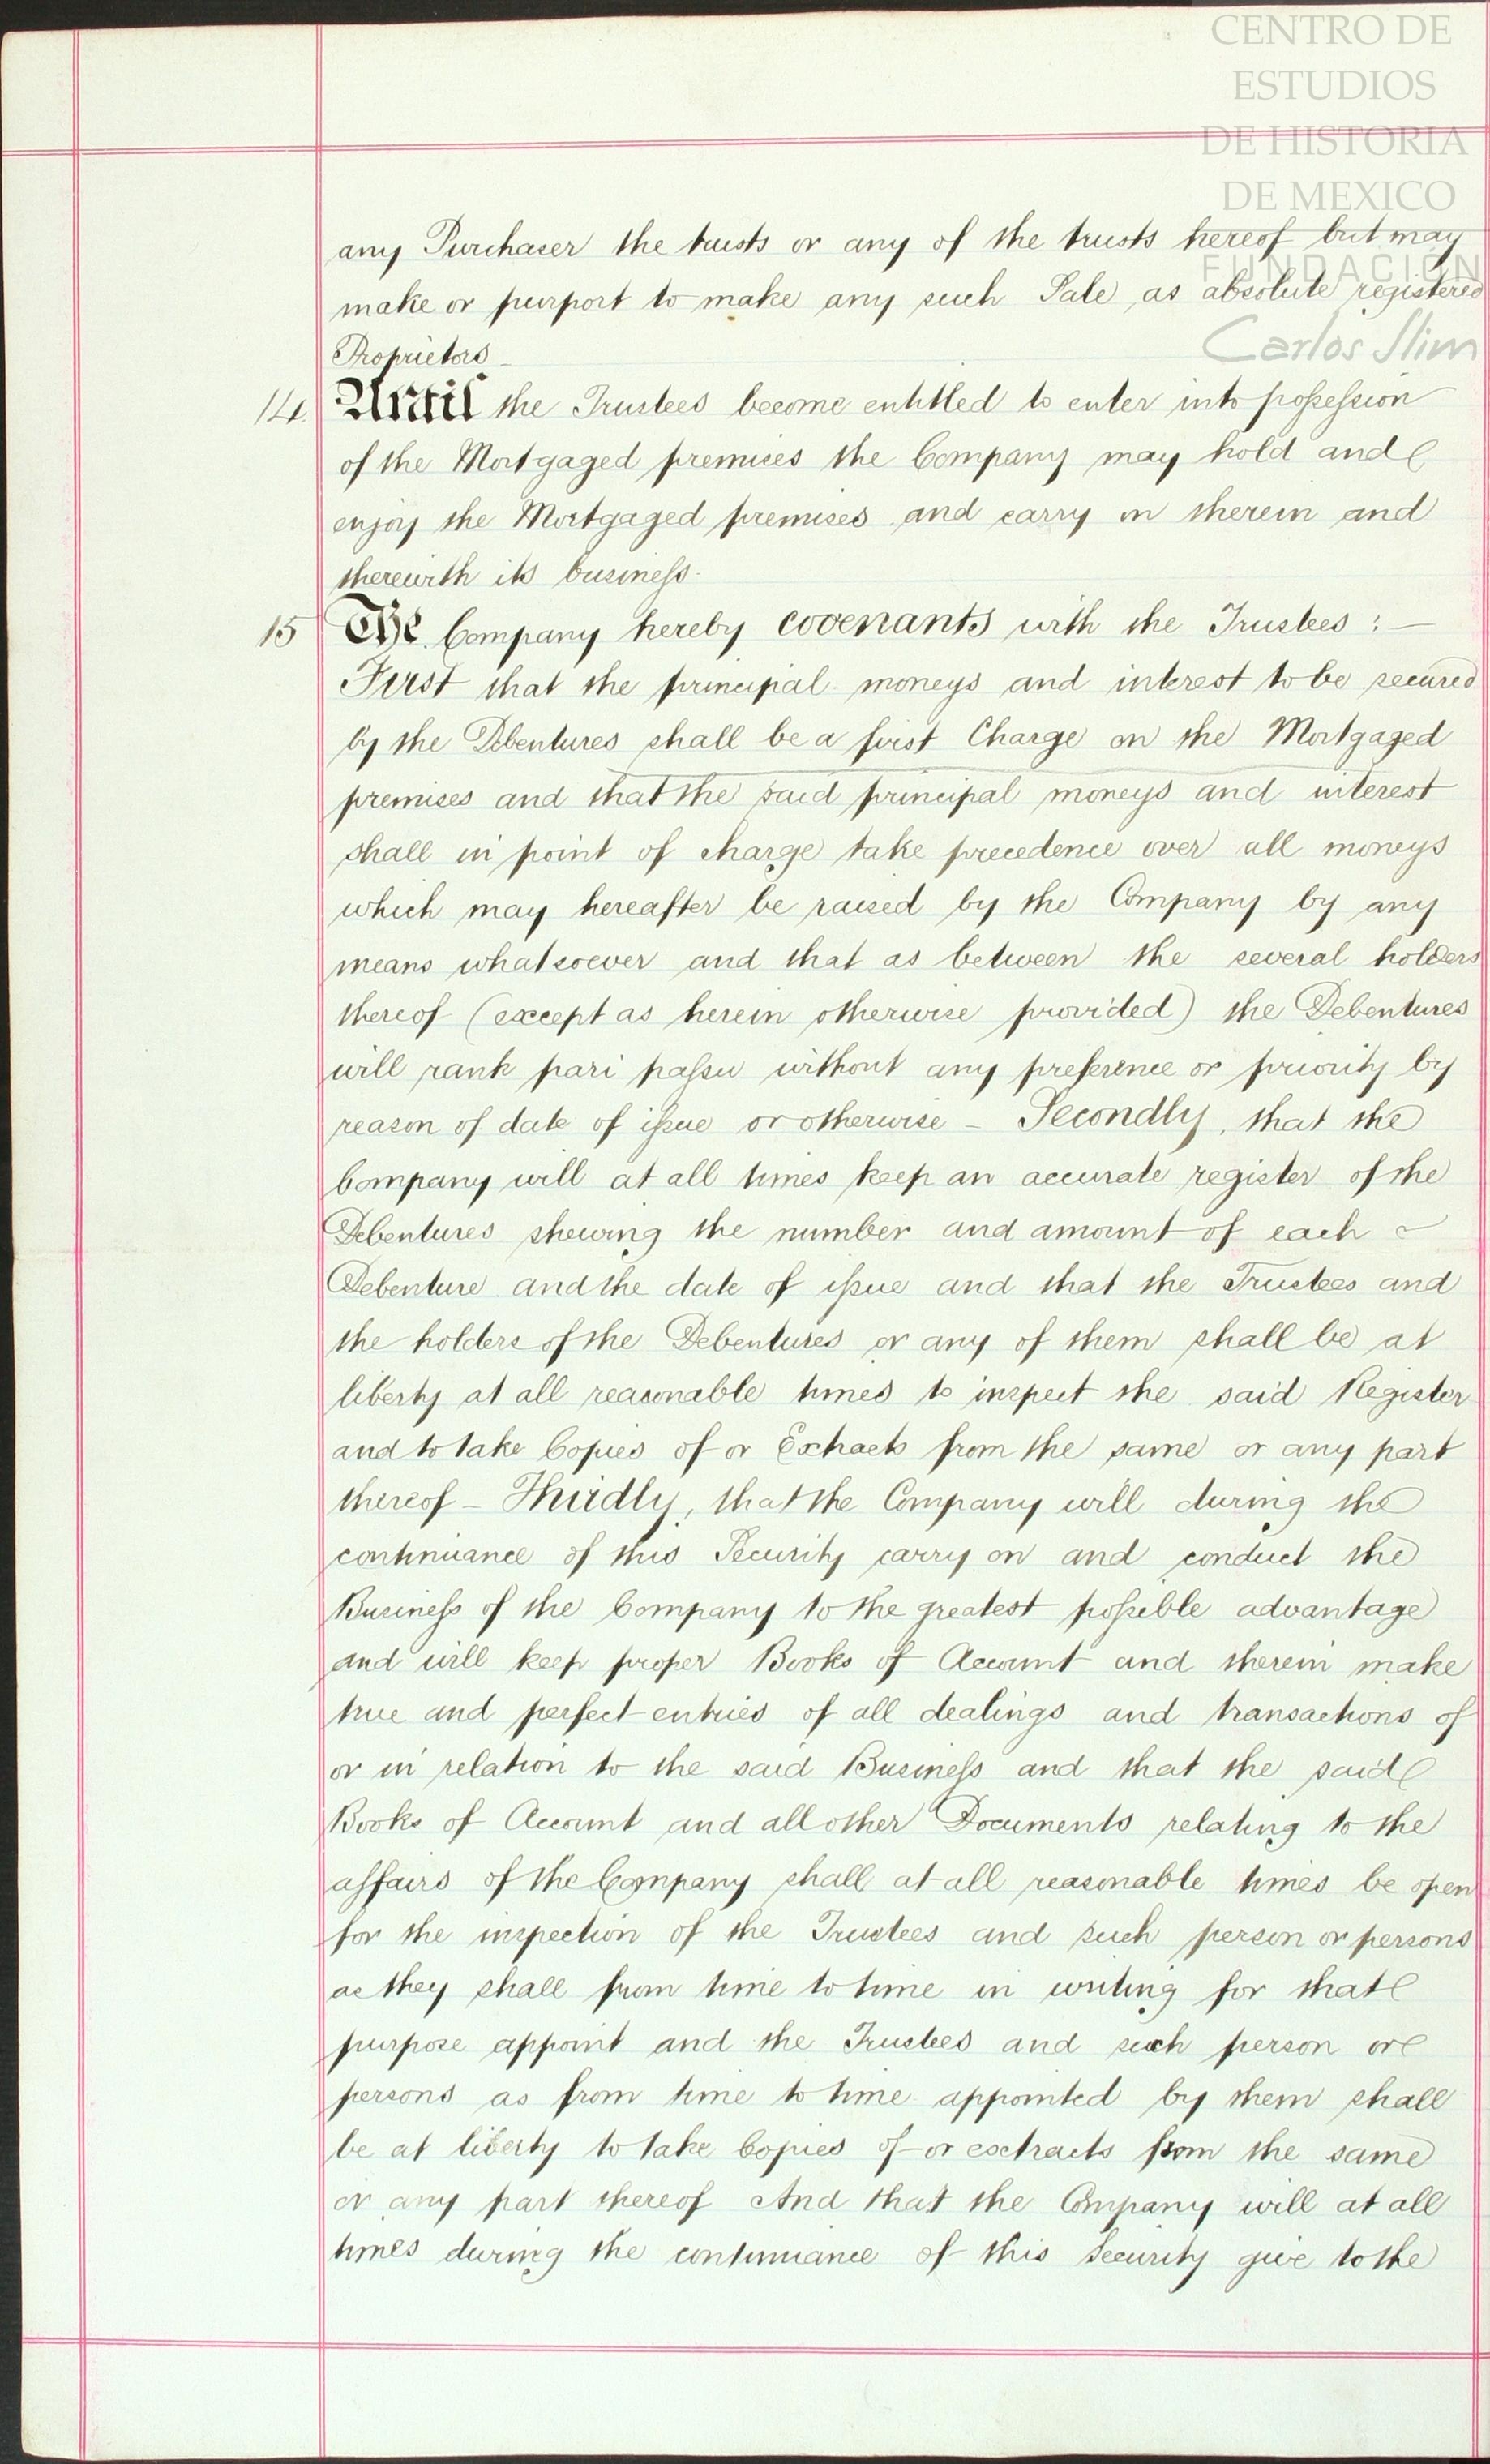 CENTRO DE
ESTUDIOS
DE HISTORIA
DE MEXICO
FUNDACIÓN
Carlos Slim
any Purchaser the trusts or any of the trusts hereof but may
make or purport to make any such Sale as absolute registered
Proprietors
14. Until the Trustees become entitled to enter into possession
of the Mortgaged premises the Company may hold and
enjoy the Mortgaged premises and carry on therein and
therewith its business.
15 The Company hereby covenants with the Trustees :—
First that the principal moneys and interest to be secured
by the Debentures shall be a first Charge on the Mortgaged
premises and that the said principal moneys and interest
shall in point of charge take precedence over all moneys
which may hereafter be raised by the Company by any
means whatsoever and that as between the several holders
thereof (except as herein otherwise provided) the Debentures
will rank pari passu without any preference or priority by
reason of date of issue or otherwise – Secondly, that the
Company will at all times keep an accurate register of the
Debentures shewing the number and amount of each
Debenture and the date of issue and that the Trustees and
the holders of the Debentures or any of them shall be at
liberty at all reasonable times to inspect the said Register
and to take Copies of or Extracts from the same or any part
thereof – Thirdly, that the Company will during the
continuance of this Security carry on and conduct the
Business of the Company to the greatest possible advantage
and will keep proper Books of Account and therein make
true and perfect entries of all dealings and transactions of
or in relation to the said Business and that the said
Books of Account and all other Documents relating to the
affairs of the Company shall at all reasonable times be open
for the inspection of the Trustees and such person or persons
as they shall from time to time in writing for that
purpose appoint and the Trustees and such person or
persons as from time to time appointed by them shall
be at liberty to take Copies of or extracts from the same
or any part thereof And that the Company will at all
times during the continuance of this Security give to the